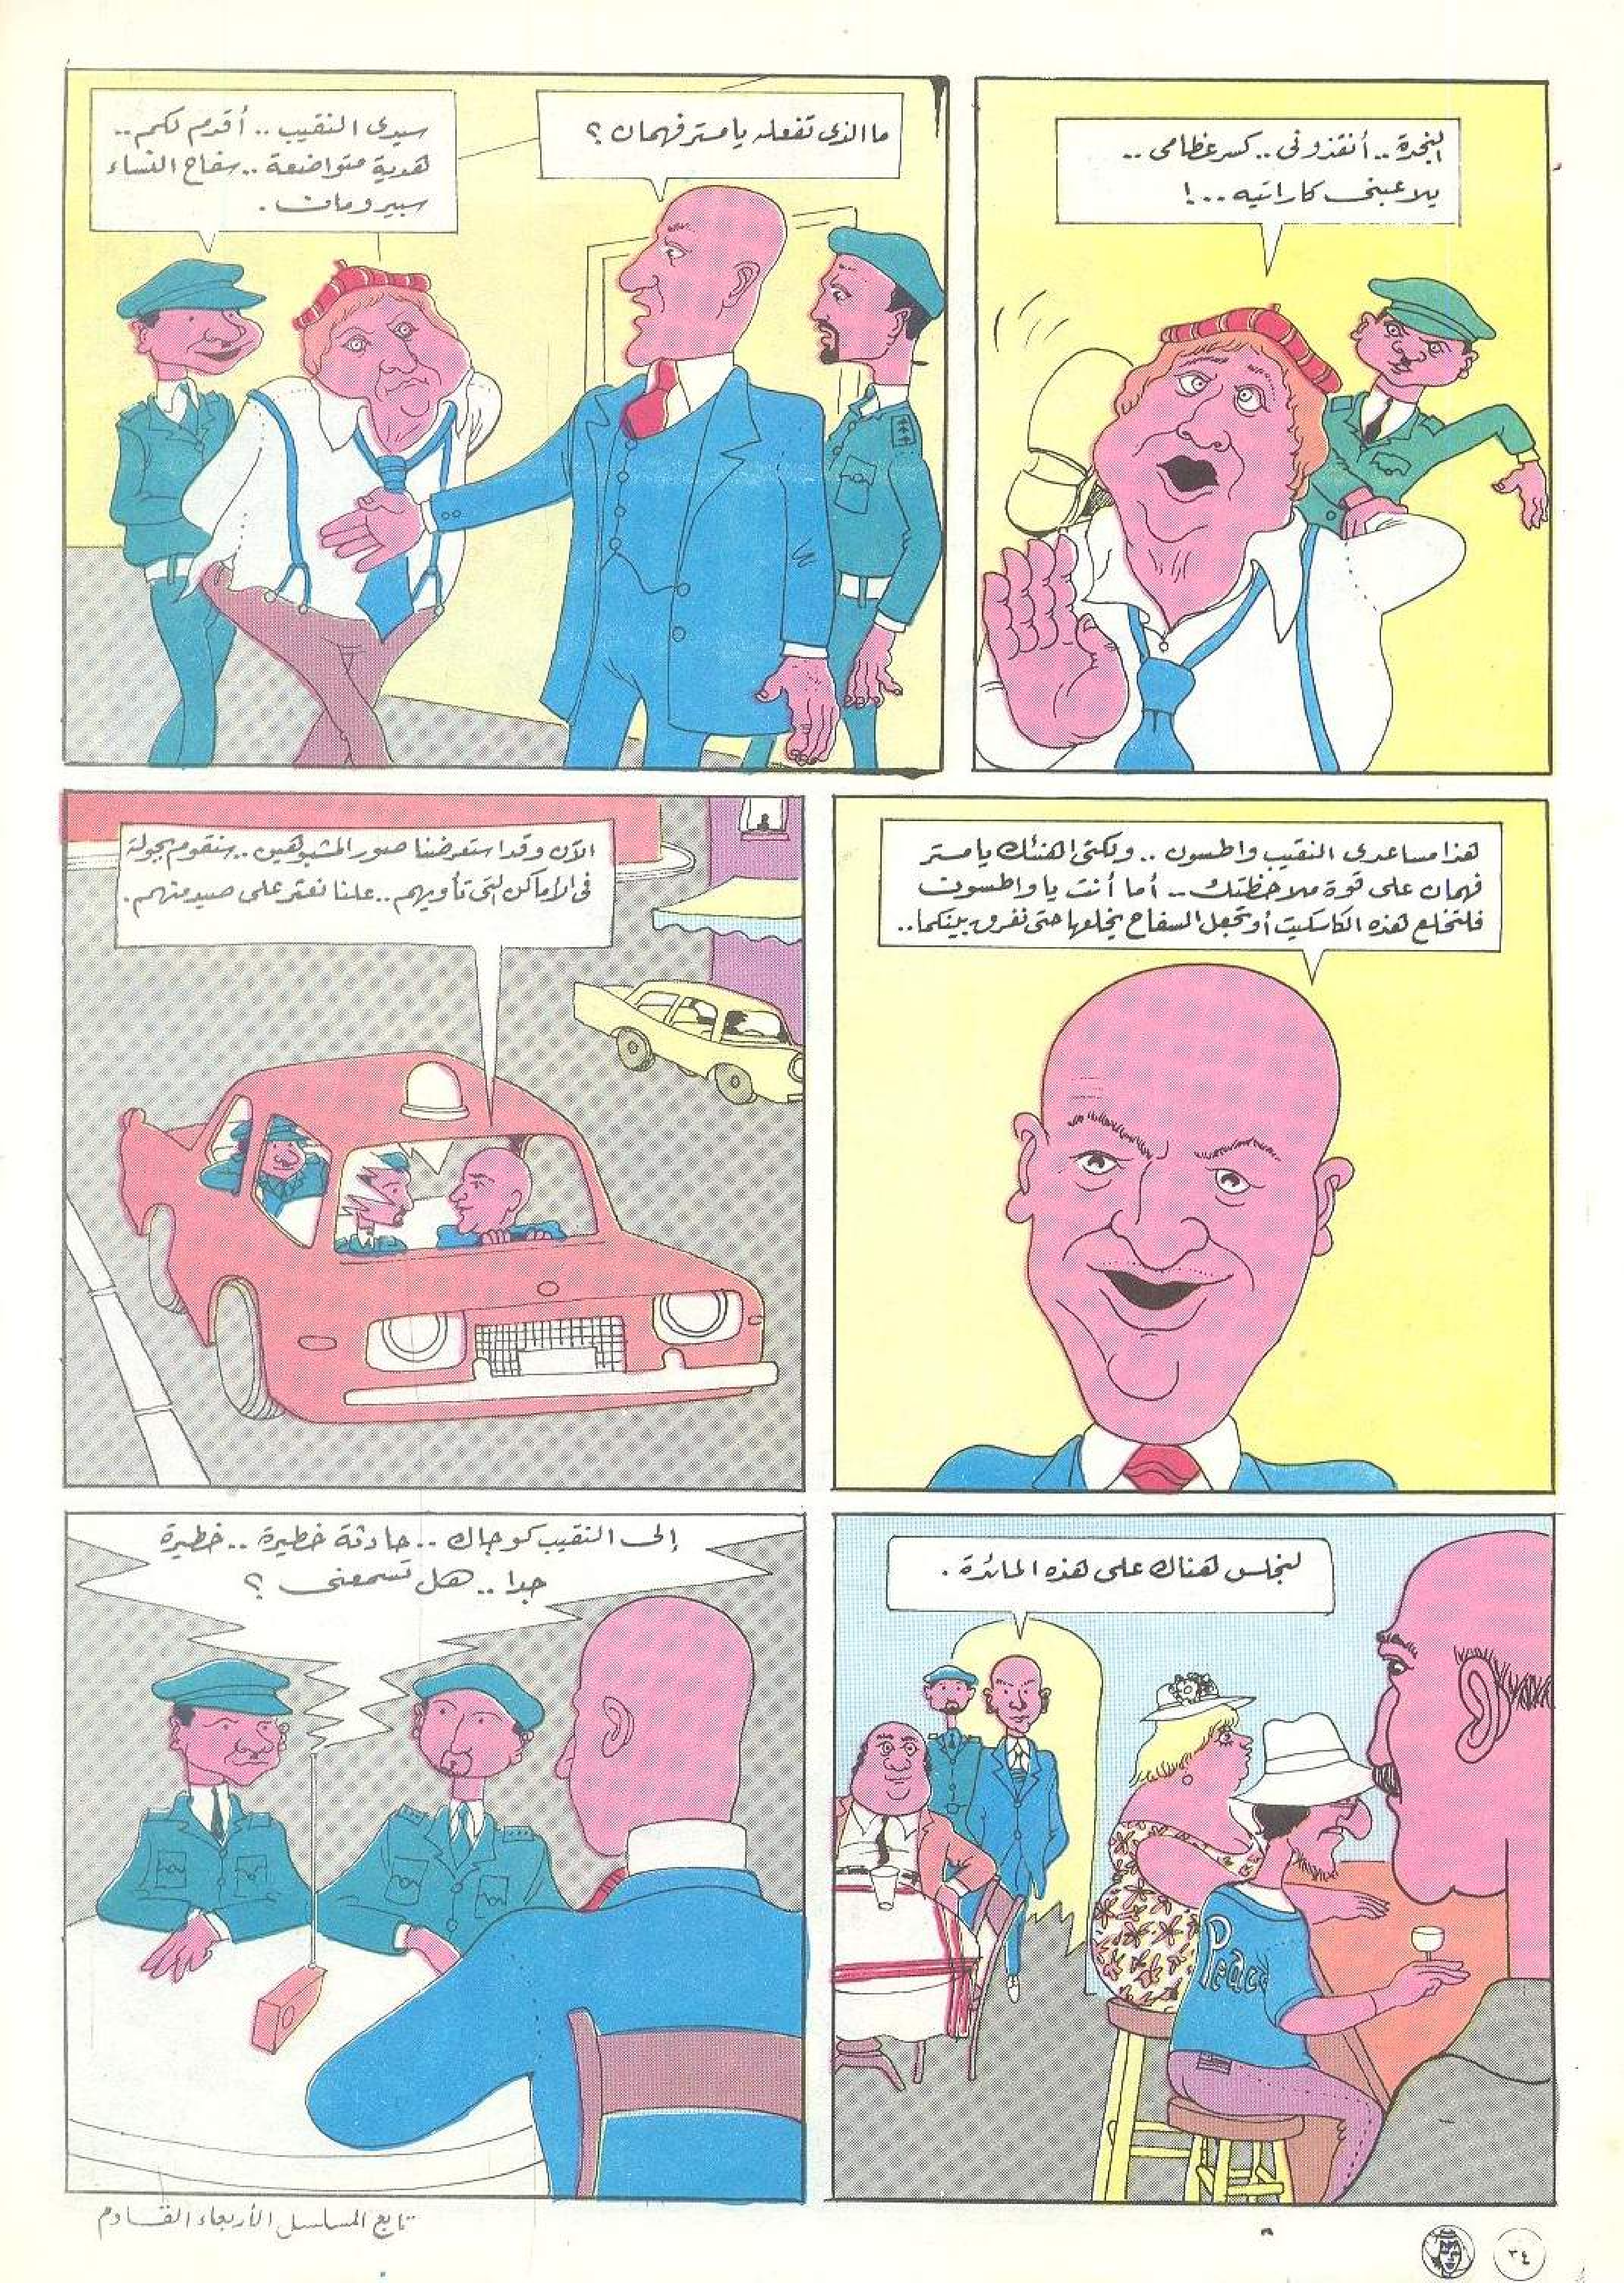 النجدة .. أنقذونى .. كسر عظامى ..
يلاعبنى كاراتيه ... !
ما الذى تفعله يا مستر فهمان ؟
سيدى النقيب .. أقدم لكم ..
هدية متواضعة .. سفاح النساء
سبيرومات .
هذا مساعدى النقيب واطسون .. ولكنى اهنئك يا مستر
فهمان على قوة ملاحظتك .. أما أنت يا واطسون
فلتخلع هذه الكاسكيت أو تجعل السفاح يخلعها حتى نفرق بينكما ..
الآن وقد استعرضنا صور المشبوهين .. سنقوم بجولة
فى الاماكن التى تأويهم .. علنا نعثر على صيد منهم .
لنجلس هناك على هذه المائدة .
Peace
إلى النقيب كوجاك .. حادثة خطيرة .. خطيرة
جدا .. هل تسمعنى ؟
تابع المسلسل الأربعاء القادم
٣٤